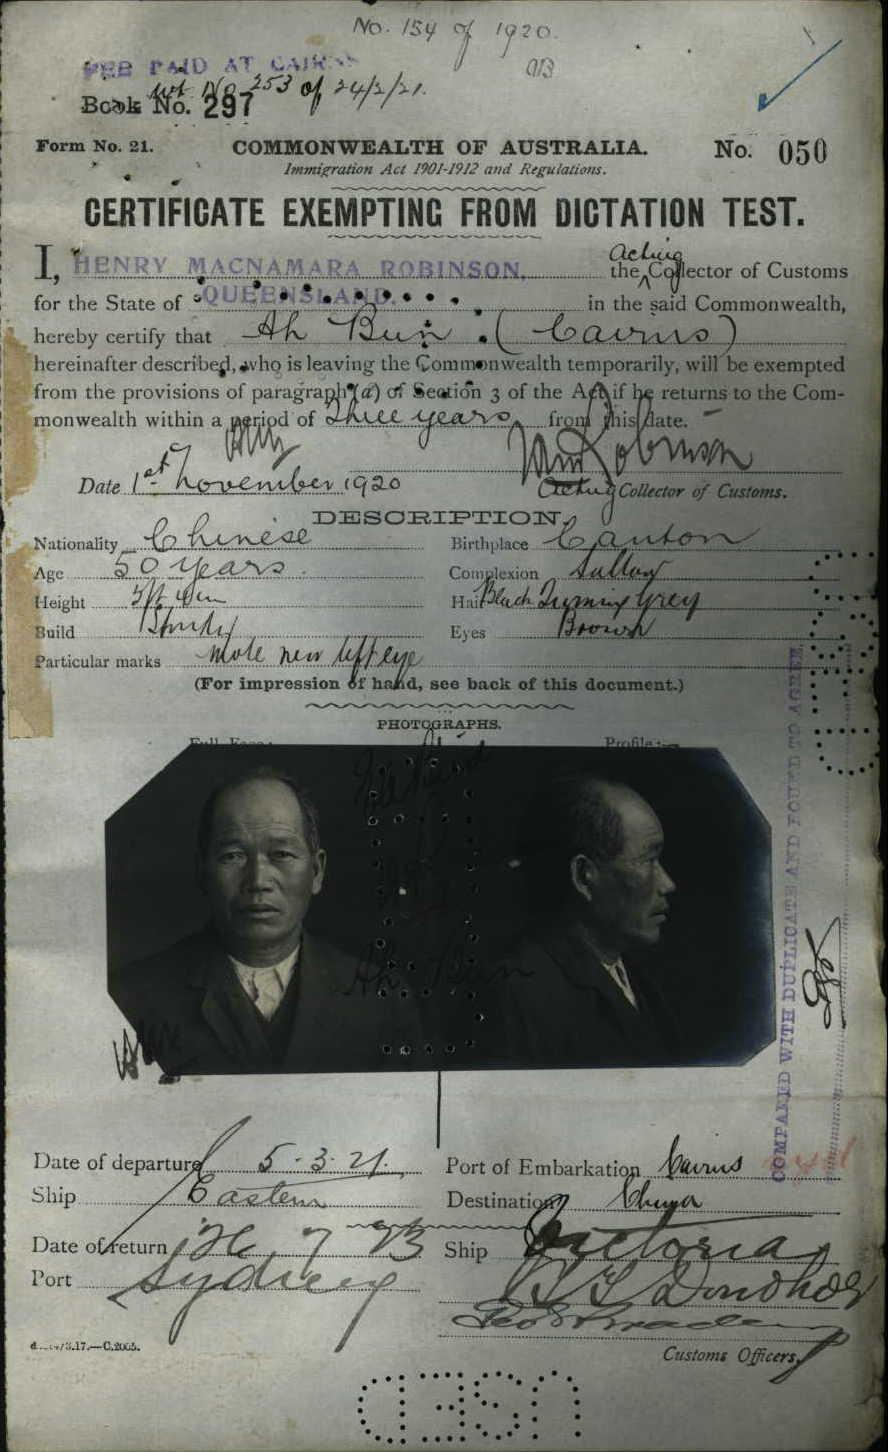 No. 154 of 1920.
FEE PAID AT CAIRNS
No 253 of 24/2/21.
Book No. 297
Form No. 21.
COMMONWEALTH OF AUSTRALIA.
No. 050
Immigration Act 1901-1912 and Regulations.
CERTIFICATE EXEMPTING FROM DICTATION TEST.
I, HENRY MACNAMARA ROBINSON, the Acting Collector of Customs
for the State of QUEENSLAND, in the said Commonwealth,
hereby certify that Ah Bun (Cairns)
hereinafter described, who is leaving the Commonwealth temporarily, will be exempted
from the provisions of paragraph (a) of Section 3 of the Act if he returns to the Com-
monwealth within a period of Three years from this date.
Date 1st November 1920
Acting Collector of Customs.
DESCRIPTION.
Nationality Chinese Birthplace Canton
Age 50 years Complexion Sallow
Height 5ft Hair Black Turning Grey
Build Eyes Brown
Particular marks mole near left eye
(For impression of hand, see back of this document.)
PHOTOGRAPHS.
Full Face:— Profile:—
Ah Bun
COMPARED WITH DUPLICATE AND FOUND TO AGREE
Date of departure 5.3.21. Port of Embarkation Cairns
Ship Eastern Destination China
Date of return 26 7 23 Ship Victoria
Port Sydney
Donohoe
3.17.—C.2005.
Customs Officers.